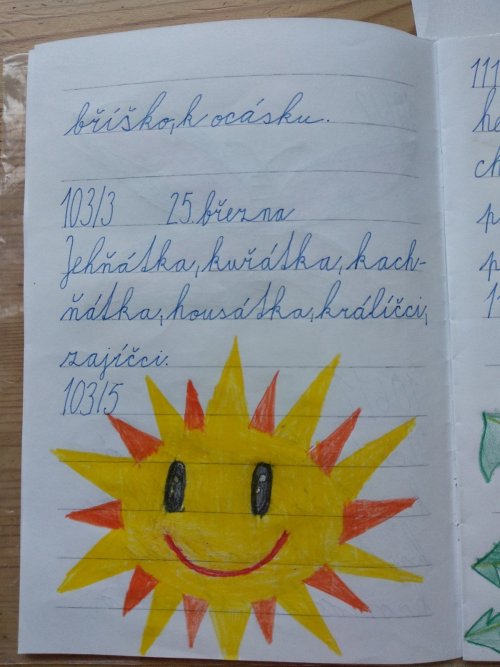 bříško, k ocásku.
103/3 25. března
Jehňátka, kuřátka, kach-
ňátka, housátka, králíčci,
zajíčci.
103/5
111